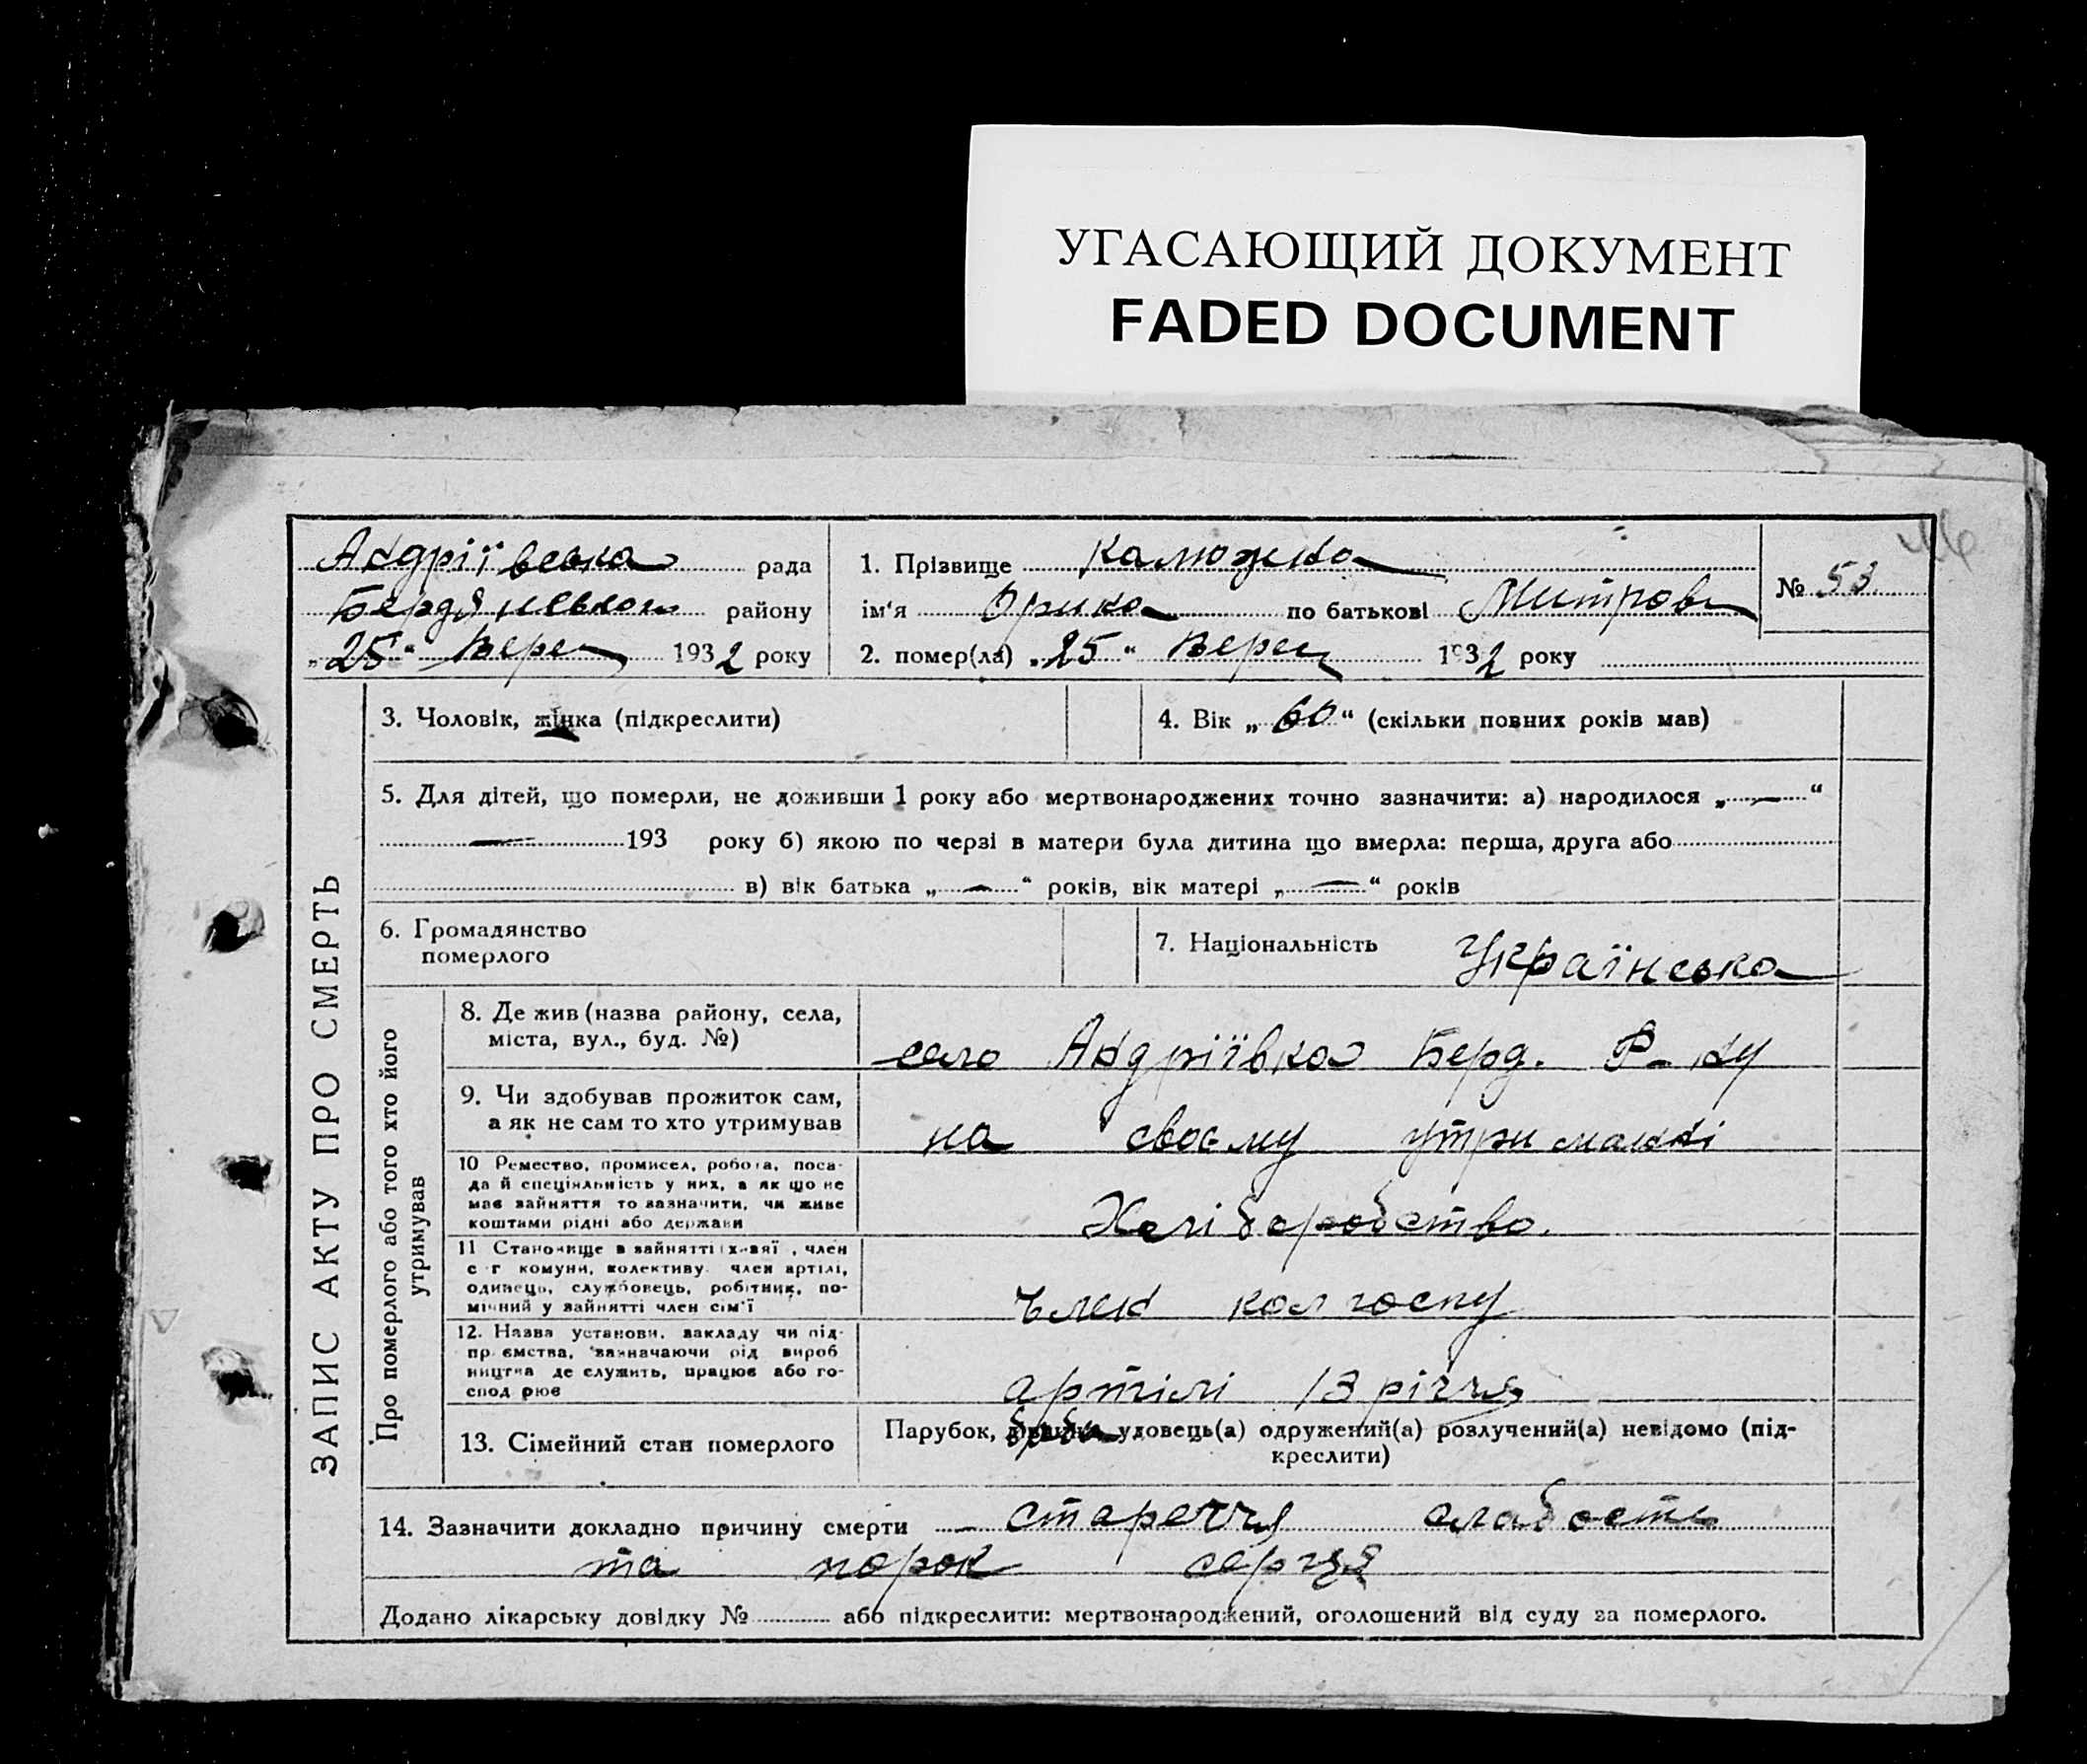 УГАСАЮЩИЙ ДОКУМЕНТ
FADED DOCUMENT
Андріївська рада
Бердянськог району
„25“ Верес 1932 року
1. Прізвище Калюжна
ім‘я Орина по батькові Митров
2. помер(ла) „25“ Верес 1932 року
№ 53
ЗАПИС АКТУ ПРО СМЕРТЬ
3. Чоловік, жінка (підкреслити)
4. Вік „60“ (скільки повних років мав)
5. Для дітей, що померли, не доживши 1 року або мертвонароджених точно зазначити: а) народилося „—“
— 193 року б) якою по черзі в матери була дитина що вмерла: перша, друга або
в) вік батька „—“ років, вік матері „—“ років
6. Громадянство
померлого
7. Національність Українська
Про померлого або того хто його
утримував
8. Де жив (назва району, села,
міста, вул., буд. №)
село Андріївка Берд. Р-ну
9. Чи здобував прожиток сам,
а як не сам то хто утримував
на своєму утриманні
10 Ремество, промисел, робота, поса-
да й спеціяльність у них, а як що не
має зайняття то зазначити, чи живе
коштами рідні або держави
Хліборобство.
11 Становище в зайнятті , член
с г комуни, колективу член артілі,
одинець, службовець, робітник, по-
мічний у зайнятті член сім‘ї
член колгоспу
12. Назва установи, закладу чи під-
пр ємства, зазначаючи рід вироб
ництва де служить, працює або го-
спод рює
артілі 13 річчя
13. Сімейний стан померлого
Парубок, удовець(а) одружений(а) розлучений(а) невідомо (під-
креслити)
14. Зазначити докладно причину смерти старечча слабость
та порок серця
Додано лікарську довідку № або підкреслити: мертвонароджений, оголошений від суду за померлого.